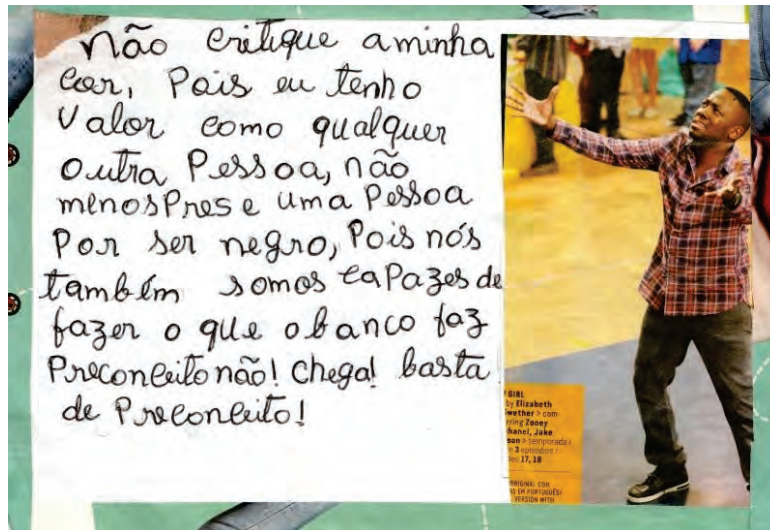 Não critique a minha
cor, Pois eu tenho
Valor como qualquer
Outra Pessoa, não
menosPrese uma Pessoa
Por ser negro, Pois nós
também somos caPazes de
fazer o que o banco faz
Preconceito não! Chega! basta
de Preconceito!
GIRL
by Elizabeth
> com
Zooey
Jake
> temporada
3 episódios
17, 18
ORIGINAL COM
EM PORTUGUÊS/
VERSION WITH